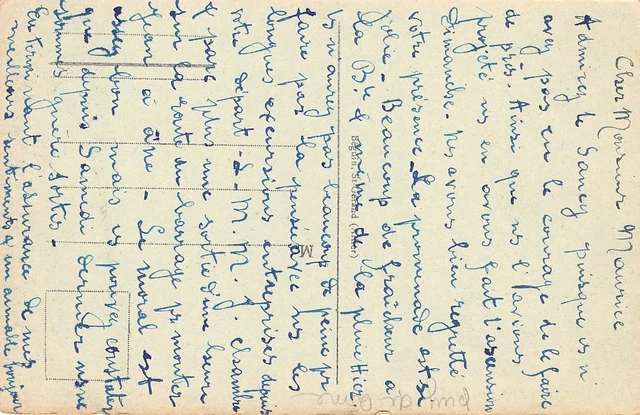 Cher Monsieur Maurice
Admirez le Sancy puisque vs n'
avez pas eu le courage de le faire
de près. Ainsi que ns l'avions
projeté ns en avons fait l'ascension
Dimanche. Ns avons bien regretté
votre présence. La promenade est si
jolie - Beaucoup de fraîcheur à
La B^{lle} et même de la pluie Hier
vs n'aurez pas beaucoup de peine pr
faire par la pensée avec ns les
longues excursions entreprises depuis
votre départ - L. M. M. J. chambre
& parc plus une sortie d'une heure
sur la route du barrage pr monter
Jean à âne - Le moral est
assez bon mais vs pouvez constater
que depuis Samedi dernier ns ne
sommes guère sorties -
En terminant l'assurance de mes
meilleurs sentiments & un aimable bonjour
M
Béguin, St-Nérand (Loire)
puy de dôme